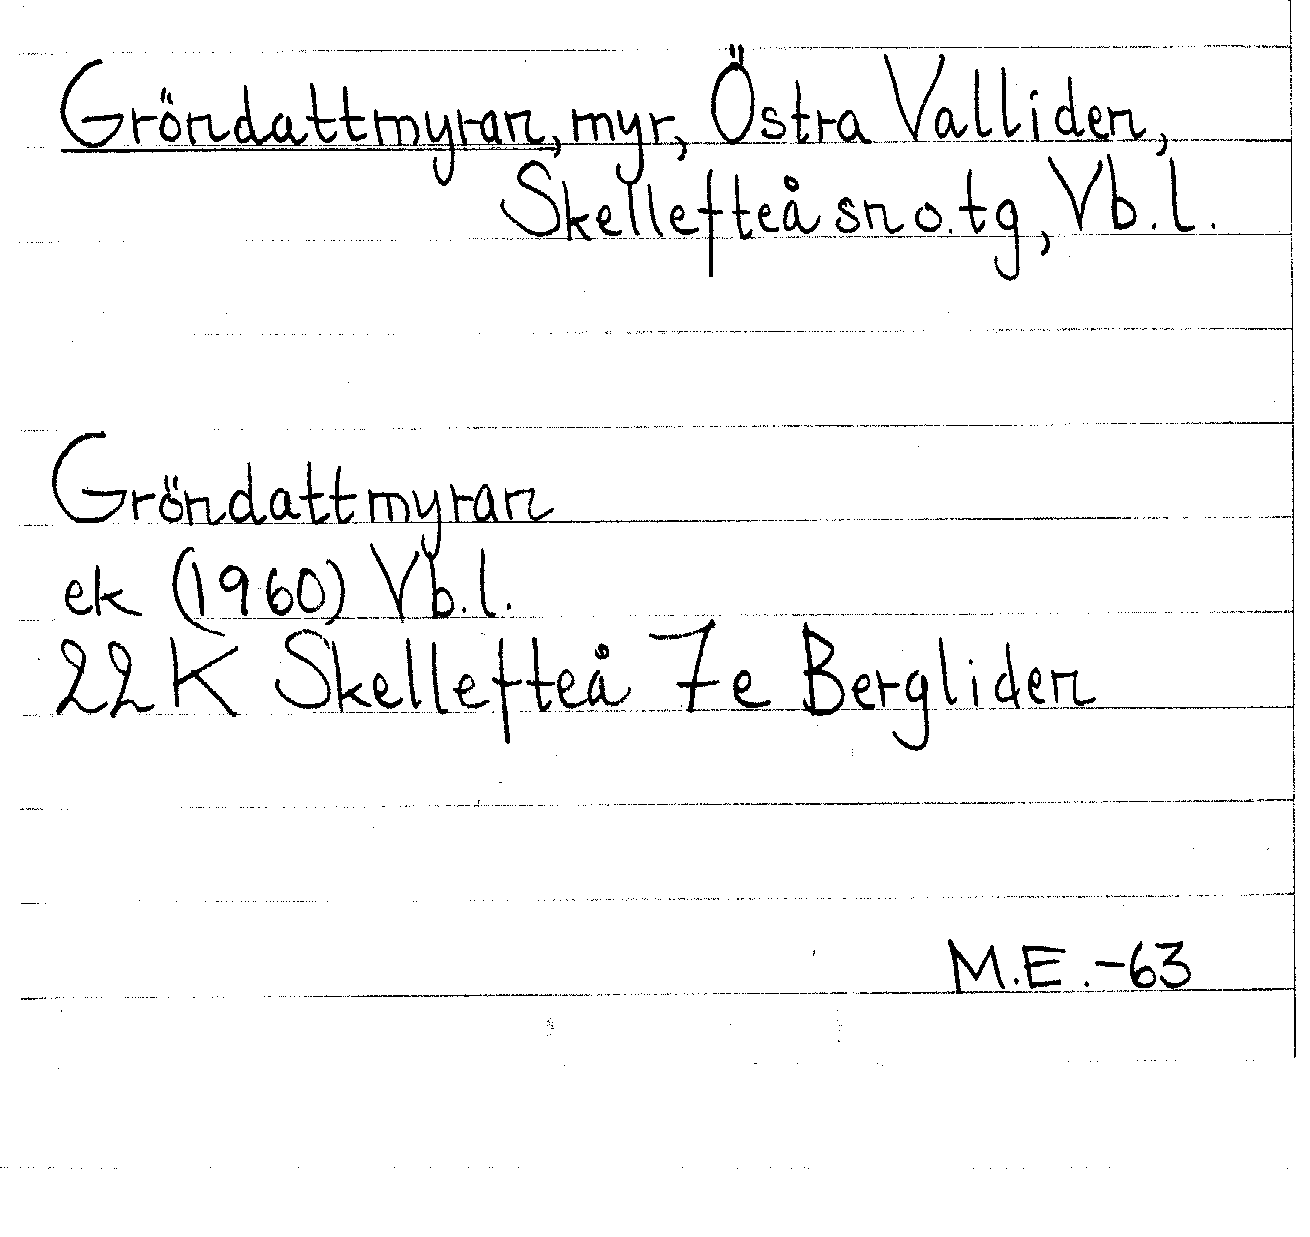 Gröndattmyran, myr, Östra Valliden,
Skellefteå sn o. tg, Vb. l.
Gröndattmyran
ek (1960) Vb. l.
22 K Skellefteå 7e Bergliden
M.E. -63